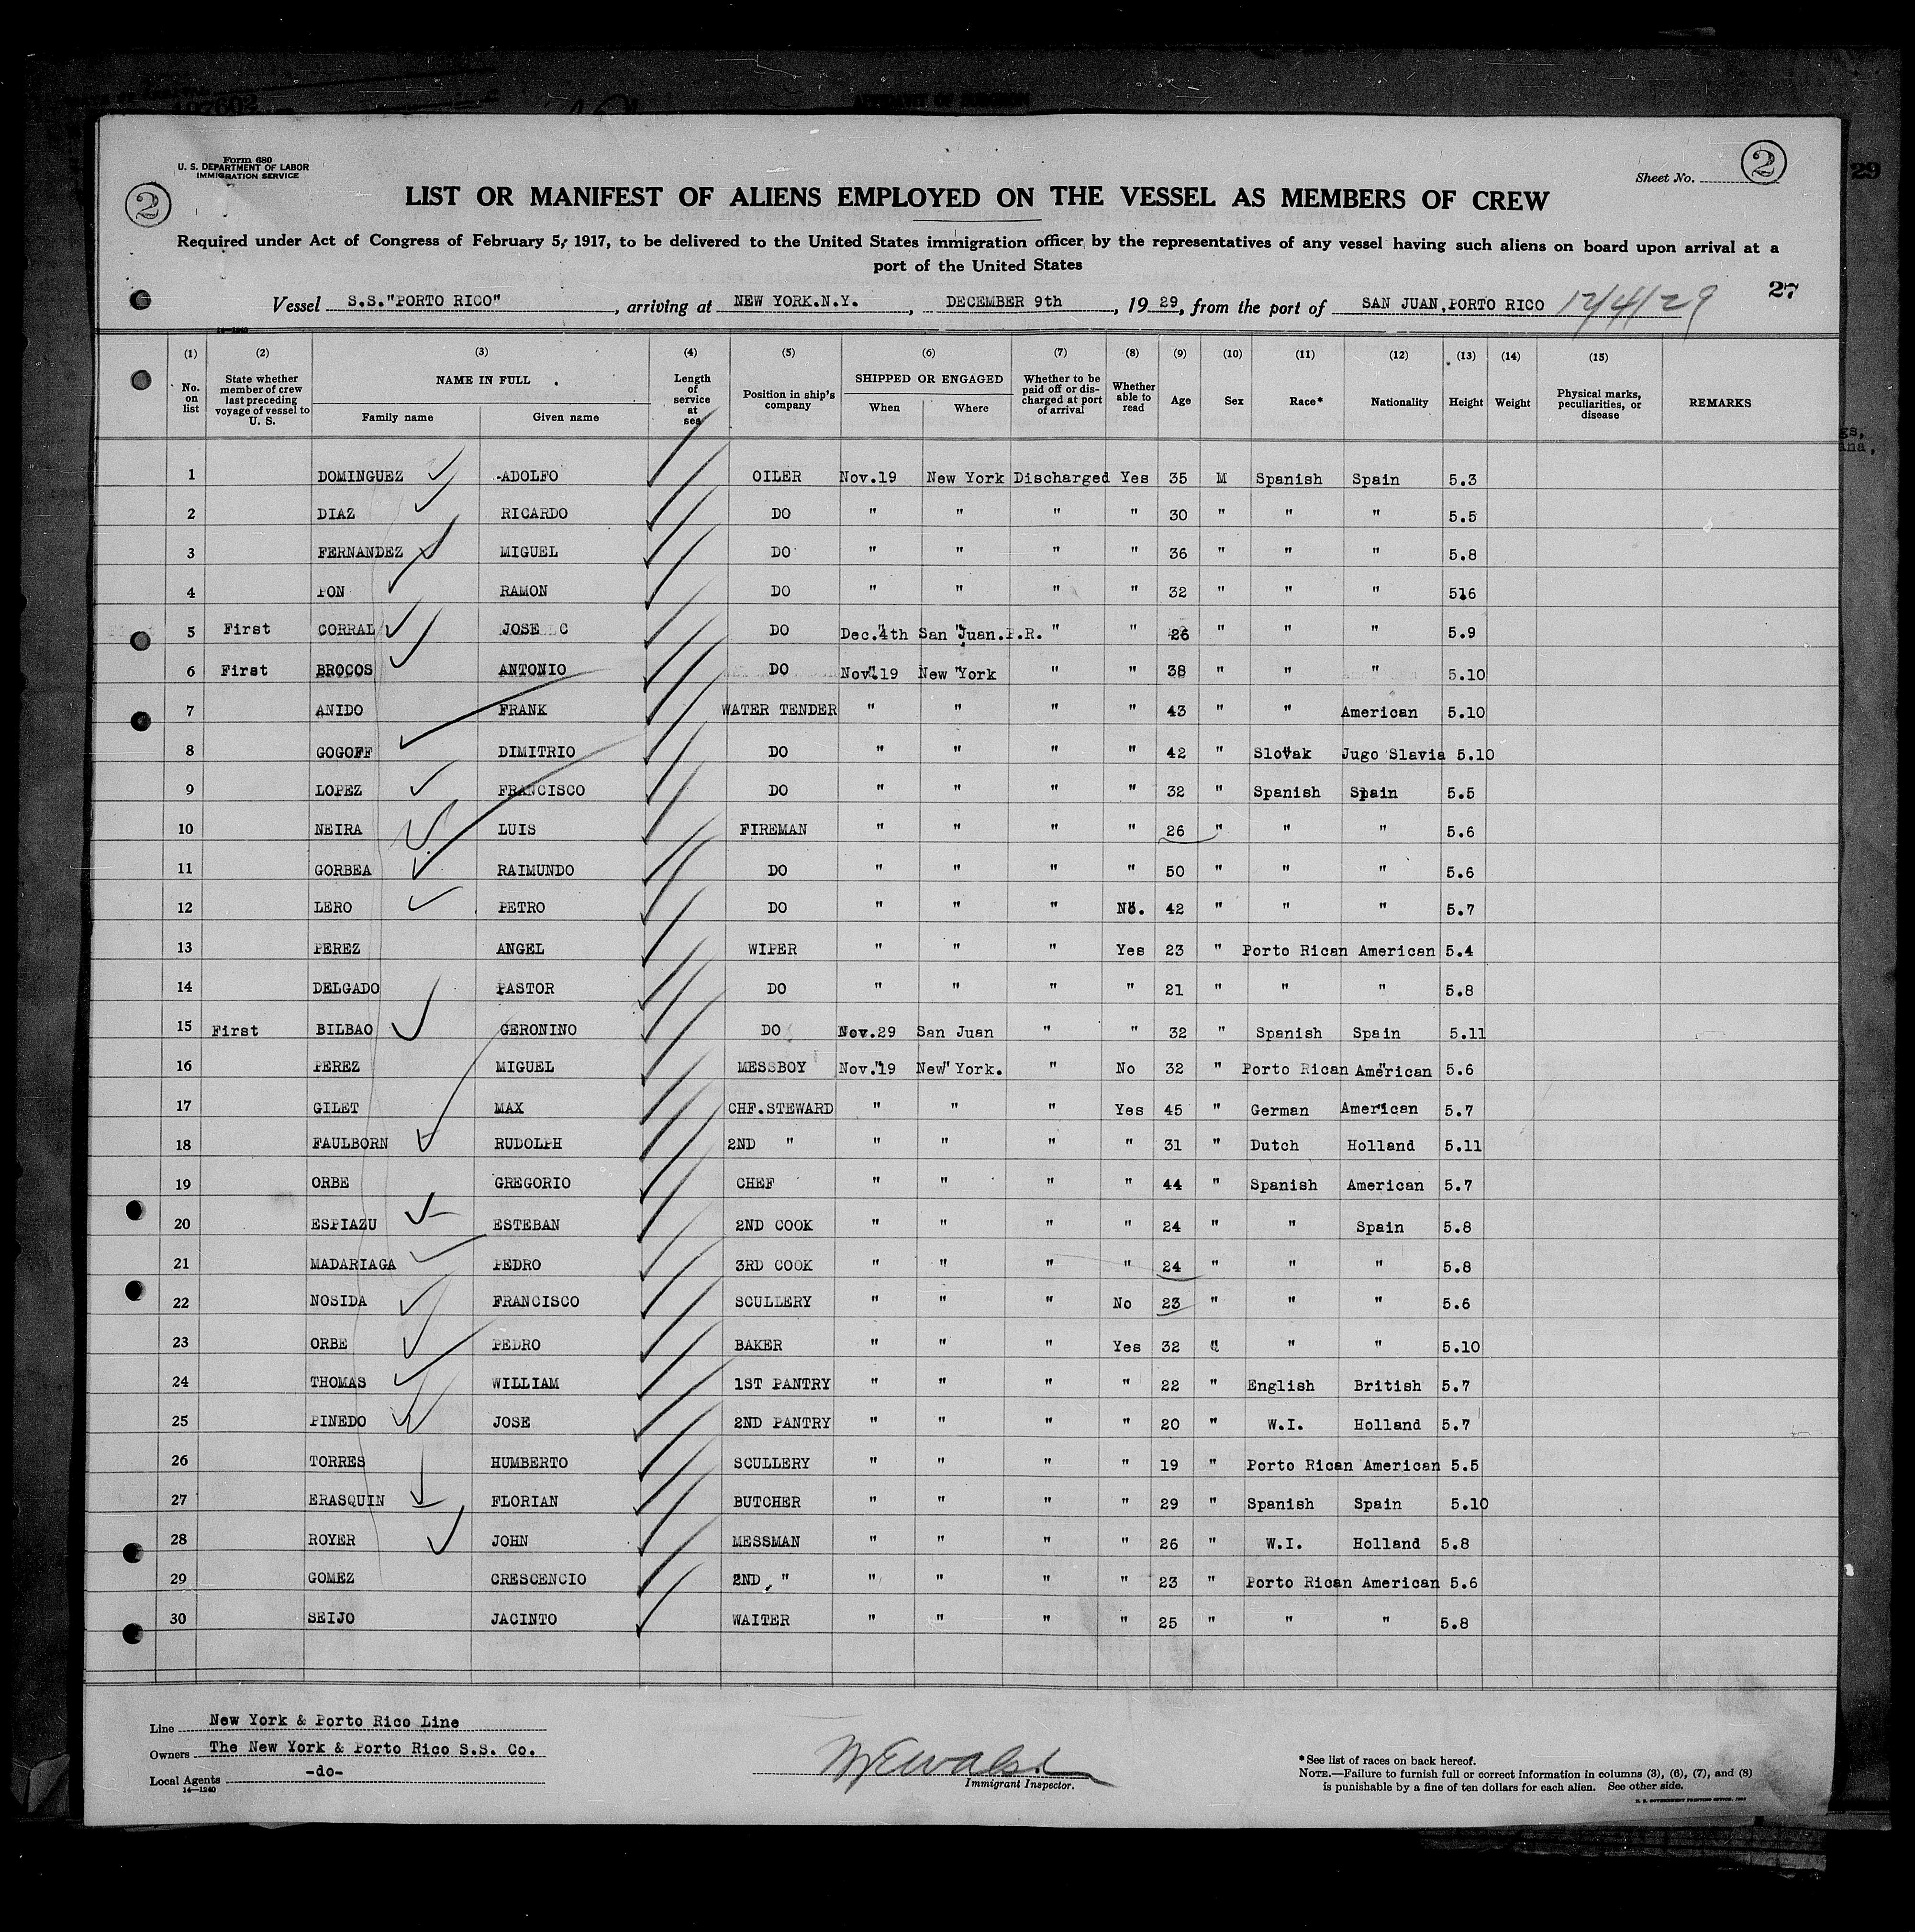 107602
AFFIDAVIT OF SURGEON
Form 680
U. S. DEPARTMENT OF LABOR
IMMIGRATION SERVICE
2
Sheet No. 2
29
LIST OR MANIFEST OF ALIENS EMPLOYED ON THE VESSEL AS MEMBERS OF CREW
Required under Act of Congress of February 5, 1917, to be delivered to the United States immigration officer by the representatives of any vessel having such aliens on board upon arrival at a
port of the United States
27
Vessel S.S."PORTO RICO", arriving at NEW YORK.N.Y., DECEMBER 9th, 1929, from the port of SAN JUAN,PORTO RICO 12/4/29
14—1240
(1) (2) (3) (4) (5) (6) (7) (8) (9) (10) (11) (12) (13) (14) (15)
No. on list State whether member of crew last preceding voyage of vessel to U. S. NAME IN FULL Family name Given name Length of service at sea Position in ship's company SHIPPED OR ENGAGED When Where Whether to be paid off or discharged at port of arrival Whether able to read Age Sex Race* Nationality Height Weight Physical marks, peculiarities, or disease REMARKS
1 DOMINGUEZ -ADOLFO OILER Nov.19 New York Discharged Yes 35 M Spanish Spain 5.3
2 DIAZ RICARDO DO " " " " 30 " " " 5.5
3 FERNANDEZ MIGUEL DO " " " " 36 " " " 5.8
4 PON RAMON DO " " " " 32 " " " 516
5 First CORRAL JOSE C DO Dec.4th San Juan.P.R. " " 26 " " " 5.9
6 First BROCOS ANTONIO DO Nov.19 New York " " 38 " " " 5.10
7 ANIDO FRANK WATER TENDER " " " " 43 " " American 5.10
8 GOGOFF DIMITRIO DO " " " " 42 " Slovak Jugo Slavia 5.10
9 LOPEZ FRANCISCO DO " " " " 32 " Spanish Spain 5.5
10 NEIRA LUIS FIREMAN " " " " 26 " " " 5.6
11 GORBEA RAIMUNDO DO " " " " 50 " " " 5.6
12 LERO PETRO DO " " " No. 42 " " " 5.7
13 PEREZ ANGEL WIPER " " " Yes 23 " Porto Rican American 5.4
14 DELGADO PASTOR DO " " " " 21 " " " 5.8
15 First BILBAO GERONINO DO Nov.29 San Juan " " 32 " Spanish Spain 5.11
16 PEREZ MIGUEL MESSBOY Nov.19 New York. " No 32 " Porto Rican American 5.6
17 GILET MAX CHF.STEWARD " " " Yes 45 " German American 5.7
18 FAULBORN RUDOLPH 2ND " " " " " 31 " Dutch Holland 5.11
19 ORBE GREGORIO CHEF " " " " 44 " Spanish American 5.7
20 ESPIAZU ESTEBAN 2ND COOK " " " " 24 " " Spain 5.8
21 MADARIAGA PEDRO 3RD COOK " " " " 24 " " " 5.8
22 NOSIDA FRANCISCO SCULLERY " " " No 23 " " " 5.6
23 ORBE PEDRO BAKER " " " Yes 32 " " " 5.10
24 THOMAS WILLIAM 1ST PANTRY " " " " 22 " English British 5.7
25 PINEDO JOSE 2ND PANTRY " " " " 20 " W.I. Holland 5.7
26 TORRES HUMBERTO SCULLERY " " " " 19 " Porto Rican American 5.5
27 ERASQUIN FLORIAN BUTCHER " " " " 29 " Spanish Spain 5.10
28 ROYER JOHN MESSMAN " " " " 26 " W.I. Holland 5.8
29 GOMEZ CRESCENCIO 2ND " " " " " 23 " Porto Rican American 5.6
30 SEIJO JACINTO WAITER " " " " 25 " " " 5.8
Line New York & Porto Rico Line
Owners The New York & Porto Rico S.S. Co.
Local Agents -do-
14—1240
Immigrant Inspector.
*See list of races on back hereof.
NOTE.—Failure to furnish full or correct information in columns (3), (6), (7), and (8)
is punishable by a fine of ten dollars for each alien. See other side.